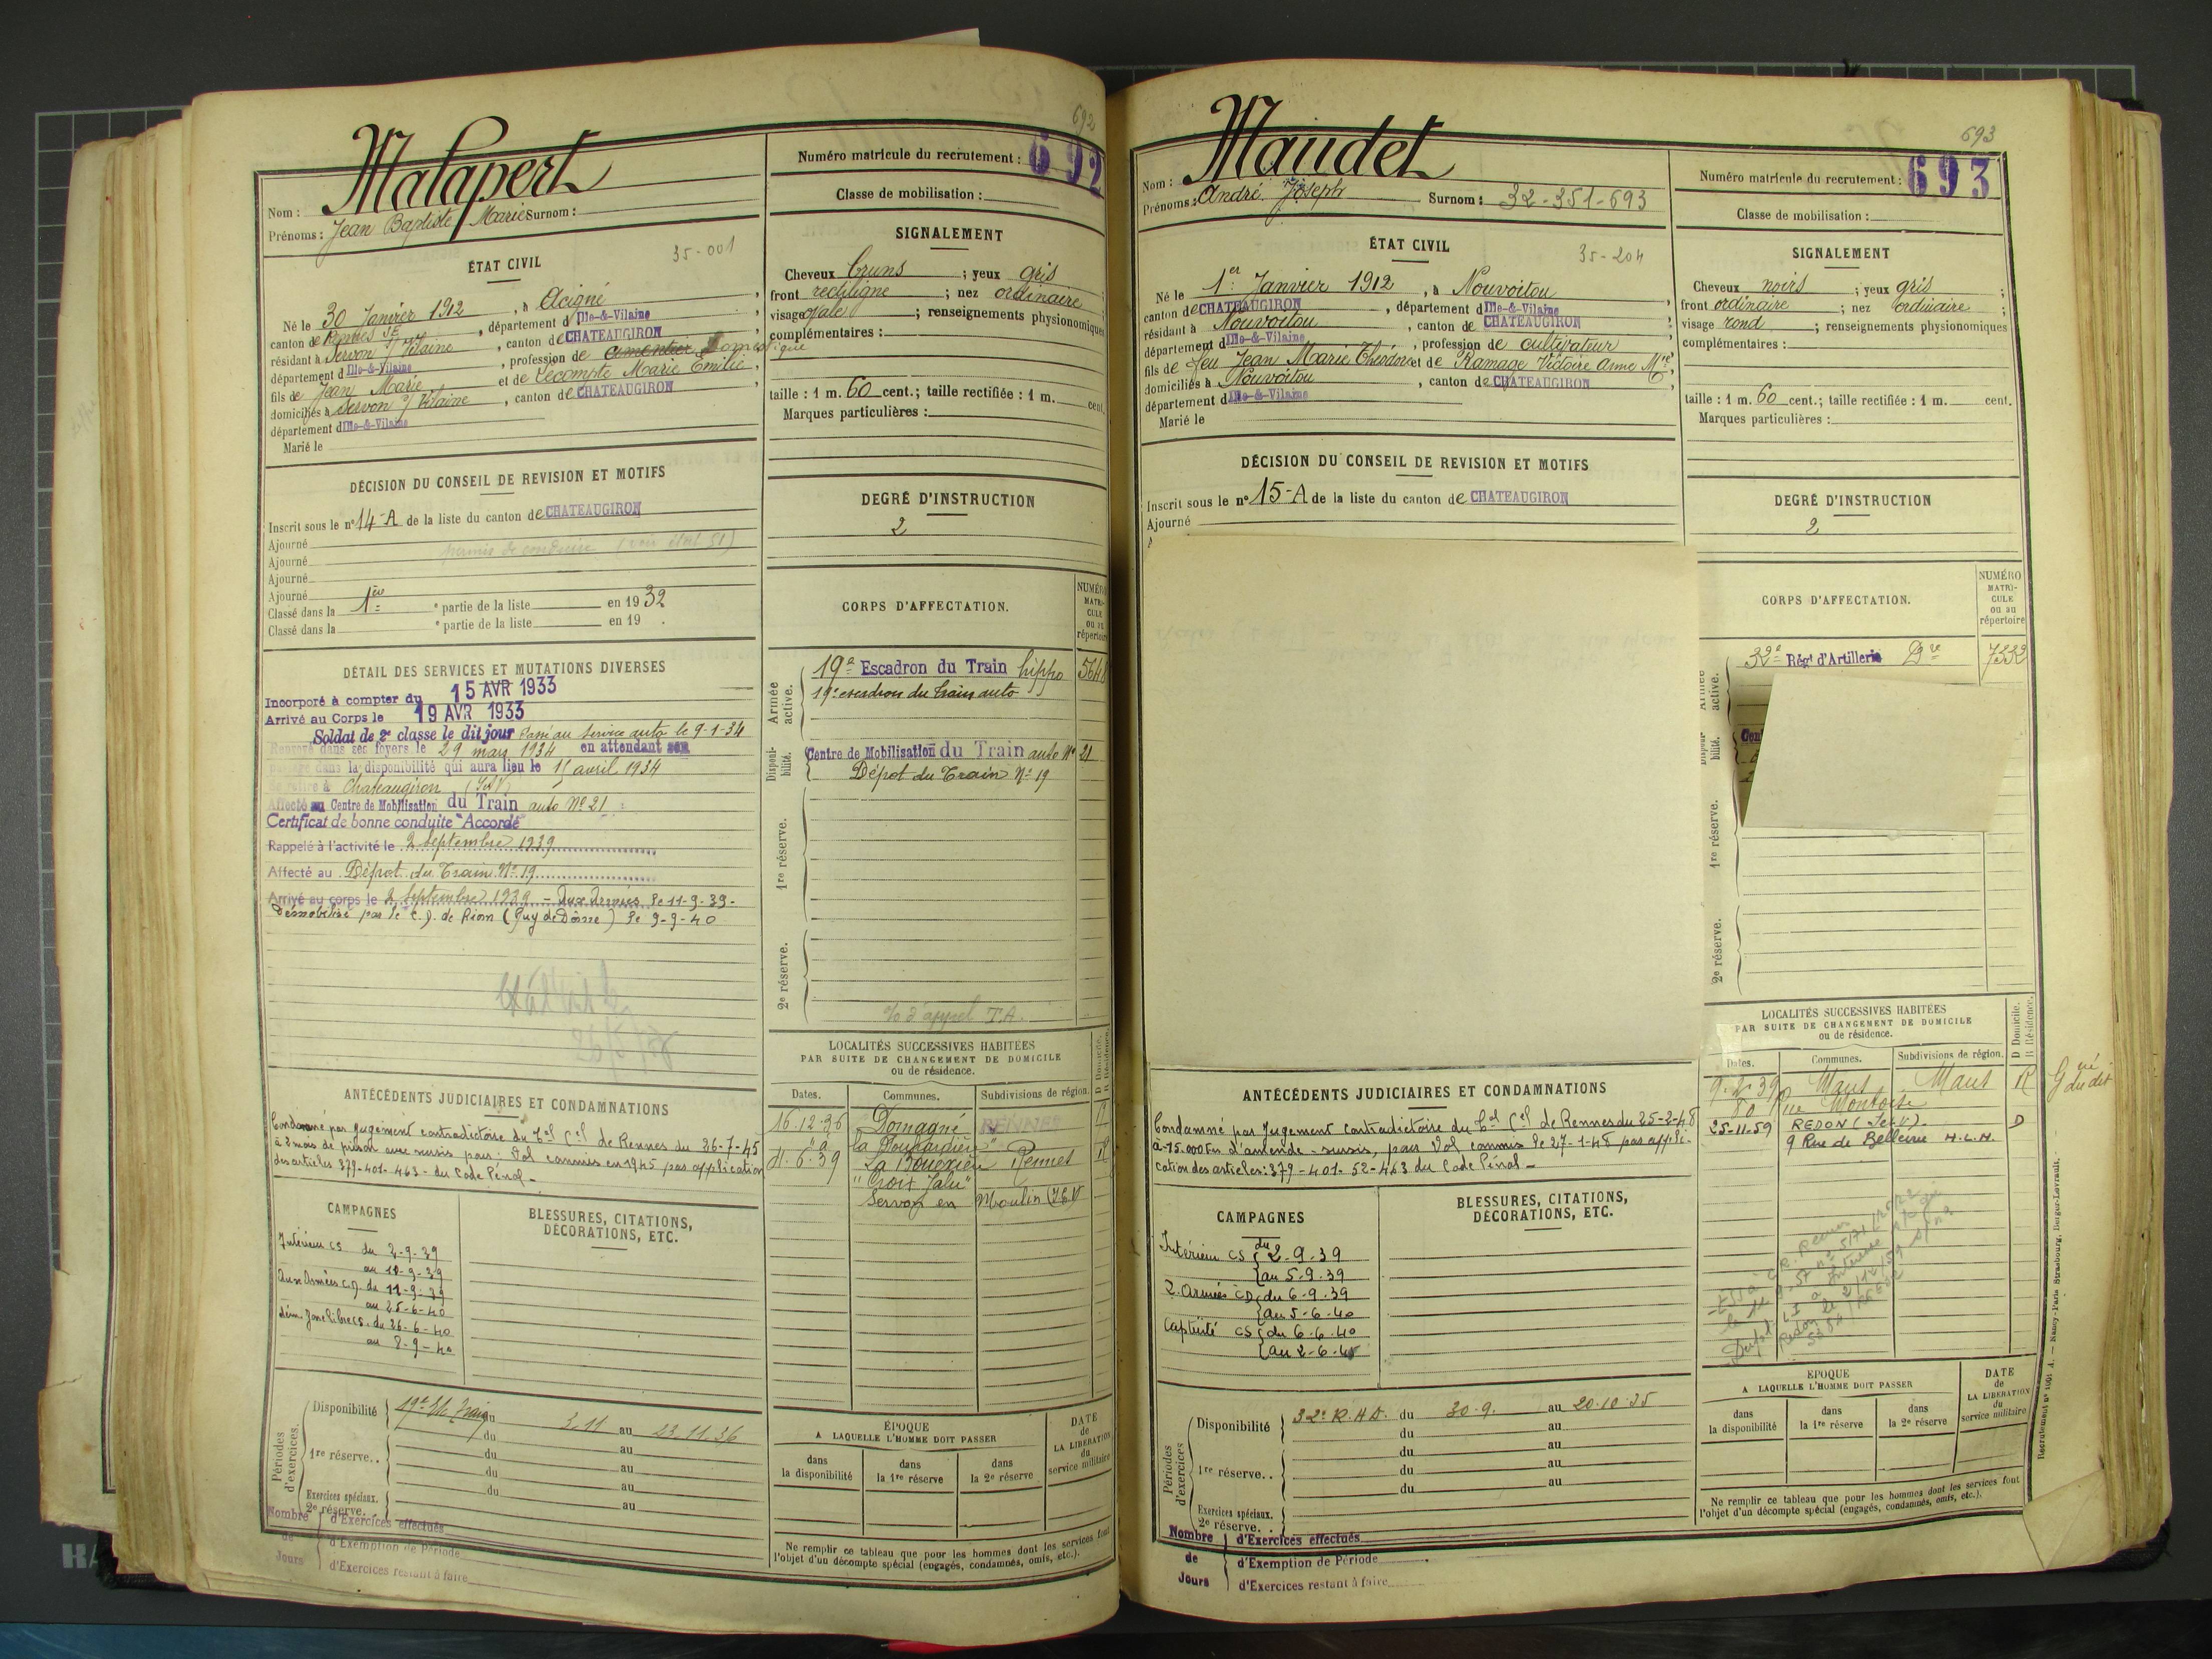 692
Malapert
Nom :
Prénoms : Jean Baptiste Marie Surnom :
Numéro matricule du recrutement : 692
Classe de mobilisation :
ÉTAT CIVIL
35-001
Né le 30 Janvier 1912, à Acigné,
canton de Rennes S.E., département d Ille-&-Vilaine
résidant à Servon s/ Vilaine, canton de CHATEAUGIRON,
département d Ille-&-Vilaine, profession de Domestique
fils de Jean Marie et de Lecompte Marie Emilie,
domiciliés à Servon s/ Vilaine, canton de CHATEAUGIRON,
département d Ille-&-Vilaine
Marié le
SIGNALEMENT
Cheveux bruns ; yeux gris
front rectiligne ; nez ordinaire ;
visage ovale ; renseignements physionomiques
complémentaires :
taille : 1 m. 60 cent. ; taille rectifiée : 1 m. cent.
Marques particulières :
DÉCISION DU CONSEIL DE REVISION ET MOTIFS
Inscrit sous le n° 14-A de la liste du canton de CHATEAUGIRON
Ajourné permis de conduire (voir état 51)
Ajourné
Ajourné
Ajourné
Classé dans la 1ère e partie de la liste en 1932
Classé dans la e partie de la liste en 19 .
DEGRÉ D'INSTRUCTION
2
DÉTAIL DES SERVICES ET MUTATIONS DIVERSES
Incorporé à compter du 15 AVR 1933
Arrivé au Corps le 19 AVR 1933
Soldat de 2e classe le dit jour Passé au service auto le 9-1-34
Renvoyé dans ses foyers le 29 mars 1934 en attendant son
passage dans la disponibilité qui aura lieu le 15 avril 1934
Se retire à Chateaugiron (I&V)
Affecté au Centre de Mobilisation du Train auto N° 21
Certificat de bonne conduite "Accordé"
Rappelé à l'activité le 2 Septembre 1939
Affecté au Dépot du Train N° 19
Arrivé au corps le 2 Septembre 1939 - Aux Armées le 11-9-39-
Démobilisé par le C.D. de Riom (Puy de Dôme) le 9-9-40
CORPS D'AFFECTATION.
NUMÉRO
MATRI-
CULE
ou au
répertoire
Armée
active.
19e Escadron du Train hippo 5648
19e escadron du train auto
Disponi-
bilité.
Centre de Mobilisation du Train auto N° 21
Dépot du Train N° 19
1re réserve.
2e réserve.
LOCALITÉS SUCCESSIVES HABITÉES
PAR SUITE DE CHANGEMENT DE DOMICILE
ou de résidence.
Dates. Communes. Subdivisions de région. D Domicile. R Résidence.
16.12.36 Domagné RENNES R
11.6.39 La Bouexière Rennes R
Servon en Moulin (I&V
ANTÉCÉDENTS JUDICIAIRES ET CONDAMNATIONS
Condamné par jugement contradictoire du Tal Cel de Rennes du 26-7-45
à 2 mois de prison avec sursis pour : Vol commis en 1945 par application
des articles 379-401-463- du Code Pénal -
CAMPAGNES
Intérieur CS du 2-9-39
au 10-9-39
Aux Armées C.D. du 11-9-39
au 25-6-40
dém. Zone libre CS. du 26-6-40
au 8-9-40
BLESSURES, CITATIONS,
DÉCORATIONS, ETC.
Périodes
d'exercices.
Disponibilité 19e Train du 3.11 au 23.11.36
du au
1re réserve.. du au
du au
du au
Exercices spéciaux.
2e réserve. au
Nombre de Jours
d'Exercices effectués
d'Exemption de Période
d'Exercices restant à faire
ÉPOQUE
A LAQUELLE L'HOMME DOIT PASSER
dans la disponibilité
dans la 1re réserve
dans la 2e réserve
DATE
de
LA LIBÉRATION
du
service militaire
Ne remplir ce tableau que pour les hommes dont les services font
l'objet d'un décompte spécial (engagés, condamnés, omis, etc.).
693
Maudet
Nom :
Prénoms : André Joseph Surnom : 32-351-693
Numéro matricule du recrutement : 693
Classe de mobilisation :
ÉTAT CIVIL
35-204
Né le 1er Janvier 1912, à Nouvoitou
canton de CHATEAUGIRON, département d Ille-&-Vilaine
résidant à Nouvoitou, canton de CHATEAUGIRON
département d Ille-&-Vilaine, profession de cultivateur
fils de feu Jean Marie Théodore et de Ramage Victoire Anne Mie,
domiciliés à Nouvoitou, canton de CHATEAUGIRON,
département d Ille-&-Vilaine
Marié le
SIGNALEMENT
Cheveux noirs ; yeux gris ;
front ordinaire ; nez ordinaire ;
visage rond ; renseignements physionomiques
complémentaires :
taille : 1 m. 60 cent. ; taille rectifiée : 1 m. cent.
Marques particulières :
DÉCISION DU CONSEIL DE REVISION ET MOTIFS
Inscrit sous le n° 15-A de la liste du canton de CHATEAUGIRON
Ajourné
DEGRÉ D'INSTRUCTION
2
CORPS D'AFFECTATION.
NUMÉRO
MATRI-
CULE
ou au
répertoire
Armée
active.
32e Régt d'Artillerie Dre 7332
1re réserve.
2e réserve.
LOCALITÉS SUCCESSIVES HABITÉES
PAR SUITE DE CHANGEMENT DE DOMICILE
ou de résidence.
Dates. Communes. Subdivisions de région. D Domicile. R Résidence.
9.2.39 Mans Mans R
80 Rue Montoise
25-11-59 REDON (I et V) D
9 Rue de Bellevue H.L.M.
ANTÉCÉDENTS JUDICIAIRES ET CONDAMNATIONS
Condamné par Jugement contradictoire du Tal Cel de Rennes du 25-2-48
à 15.000 frs d'amende - sursis, pour Vol commis le 27-1-48 par appli-
cation des articles : 379-401-52-463 du Code Pénal -
CAMPAGNES
Intérieur CS du 2-9-39
au 5-9-39
Z. Armées CD du 6-9-39
au 5-6-40
Captivité CS du 6-6-40
au 2-6-45
BLESSURES, CITATIONS,
DÉCORATIONS, ETC.
Périodes
d'exercices
Disponibilité 32e R.A.D. du 30-9. au 20.10.35
du au
du au
1re réserve.. du au
du au
Exercices spéciaux.
2e réserve. .
Nombre de Jours
d'Exercices effectués
d'Exemption de Période
d'Exercices restant à faire
ÉPOQUE
A LAQUELLE L'HOMME DOIT PASSER
dans la disponibilité
dans la 1re réserve
dans la 2e réserve
DATE
de
LA LIBÉRATION
du
service militaire
Ne remplir ce tableau que pour les hommes dont les services font
l'objet d'un décompte spécial (engagés, condamnés, omis, etc.).
Recrutement n° 1001 A. — Nancy-Paris-Strasbourg, Berger-Levrault.